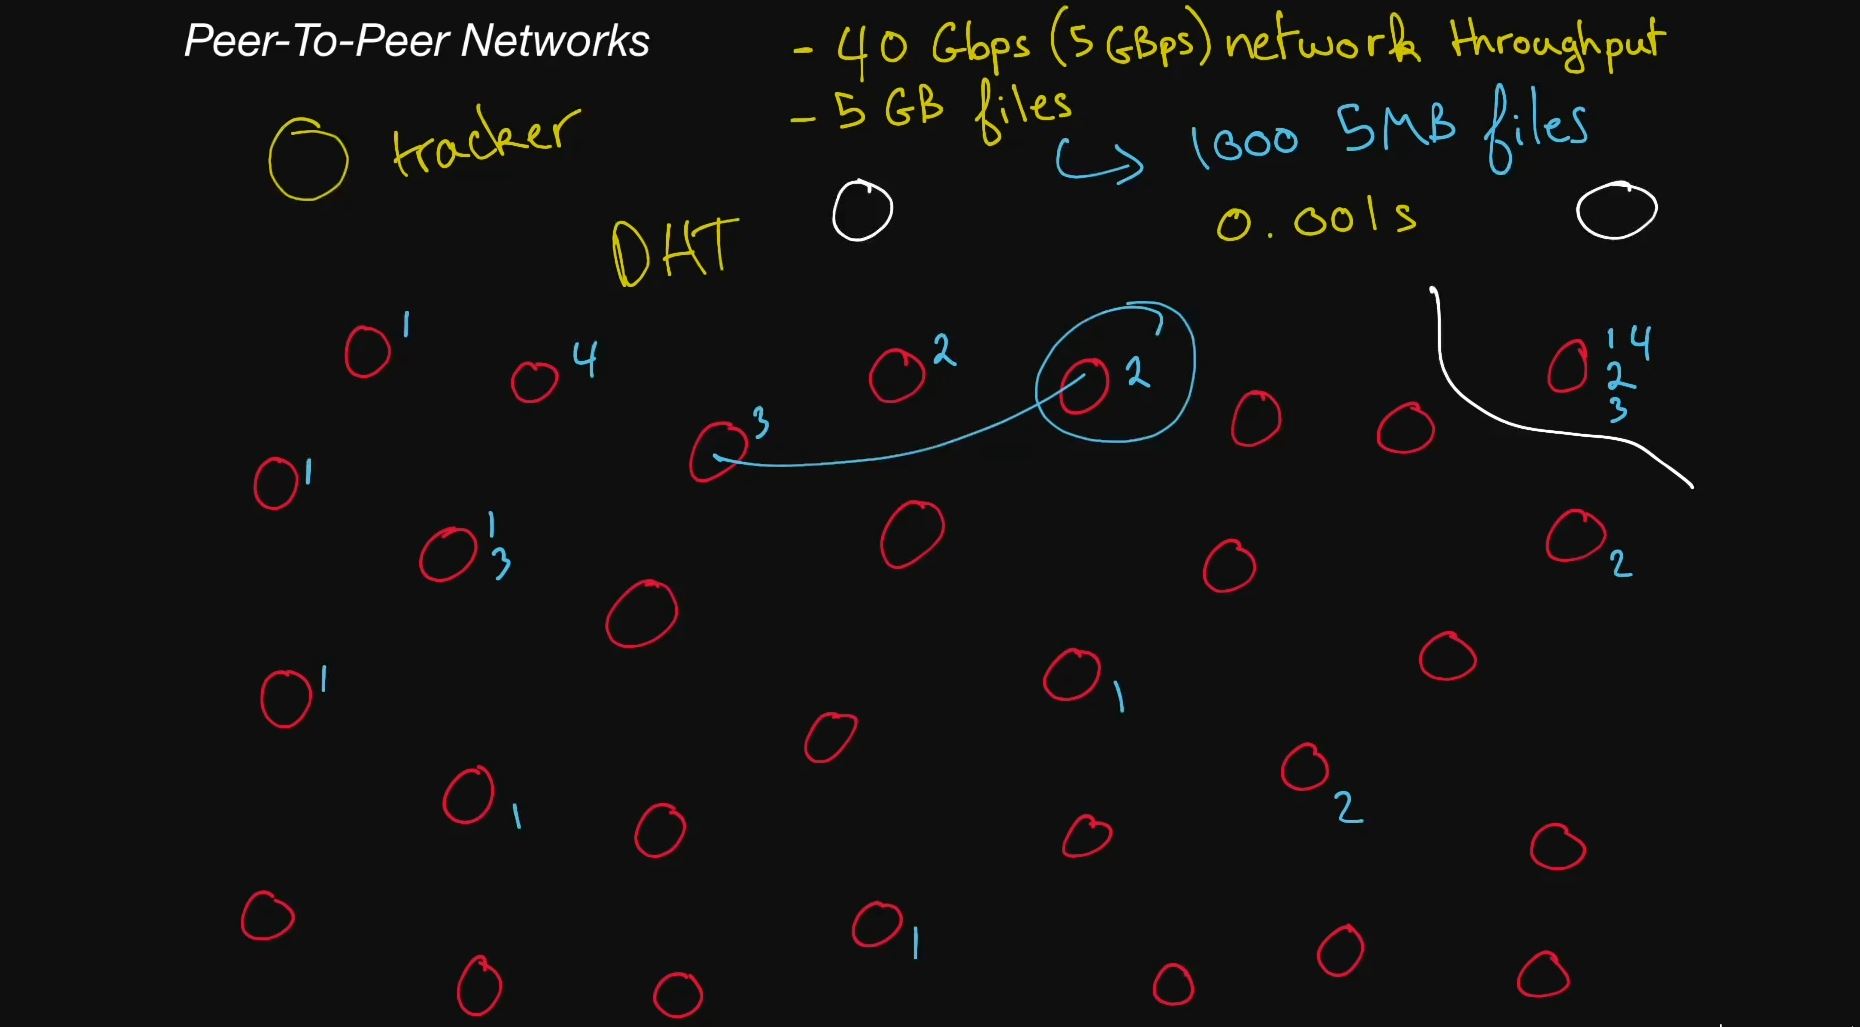 Peer-To-Peer Networks
- 40 Gbps (5 GBps) network throughput
- 5 GB files
1000 5MB files
tracker
0.001s
DHT
1
4
2
2
1 4
2
3
3
1
1
3
2
1
1
1
2
1